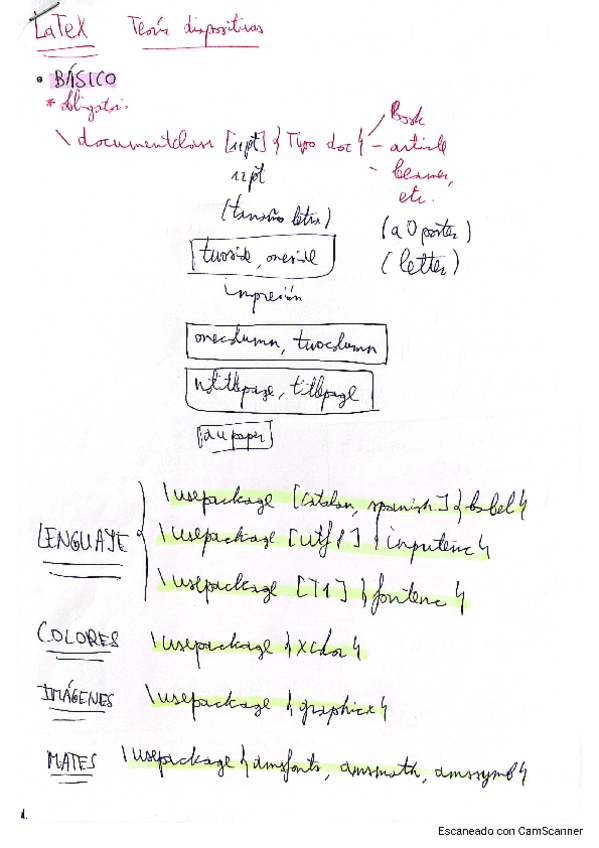 LaTeX Teoría diapositivas
• BÁSICO
* obligatorio
\documentclass [11pt] {Tipo doc} - Book
- article
12pt - beamer,
etc.
(tamaño letra) (a0poster)
twoside, oneside (letter)
impresión
onecolumn, twocolumn
notitlepage, titlepage
[a4paper]
LENGUAJE
\usepackage [catalan, spanish] {babel}
\usepackage [utf8] {inputenc}
\usepackage [T1] {fontenc}
COLORES \usepackage {xcolor}
IMÁGENES \usepackage {graphicx}
MATES \usepackage {amsfonts, amsmath, amssymb}
1.
Escaneado con CamScanner